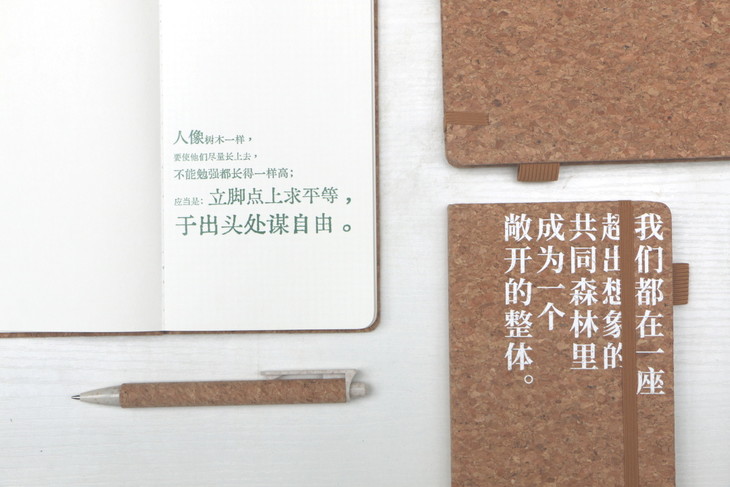 人像树木一样，
要使他们尽量长上去，
不能勉强都长得一样高；
应当是：立脚点上求平等，
于出头处谋自由。
我们都在一座
超出想象的
共同森林里
成为一个
敞开的整体。